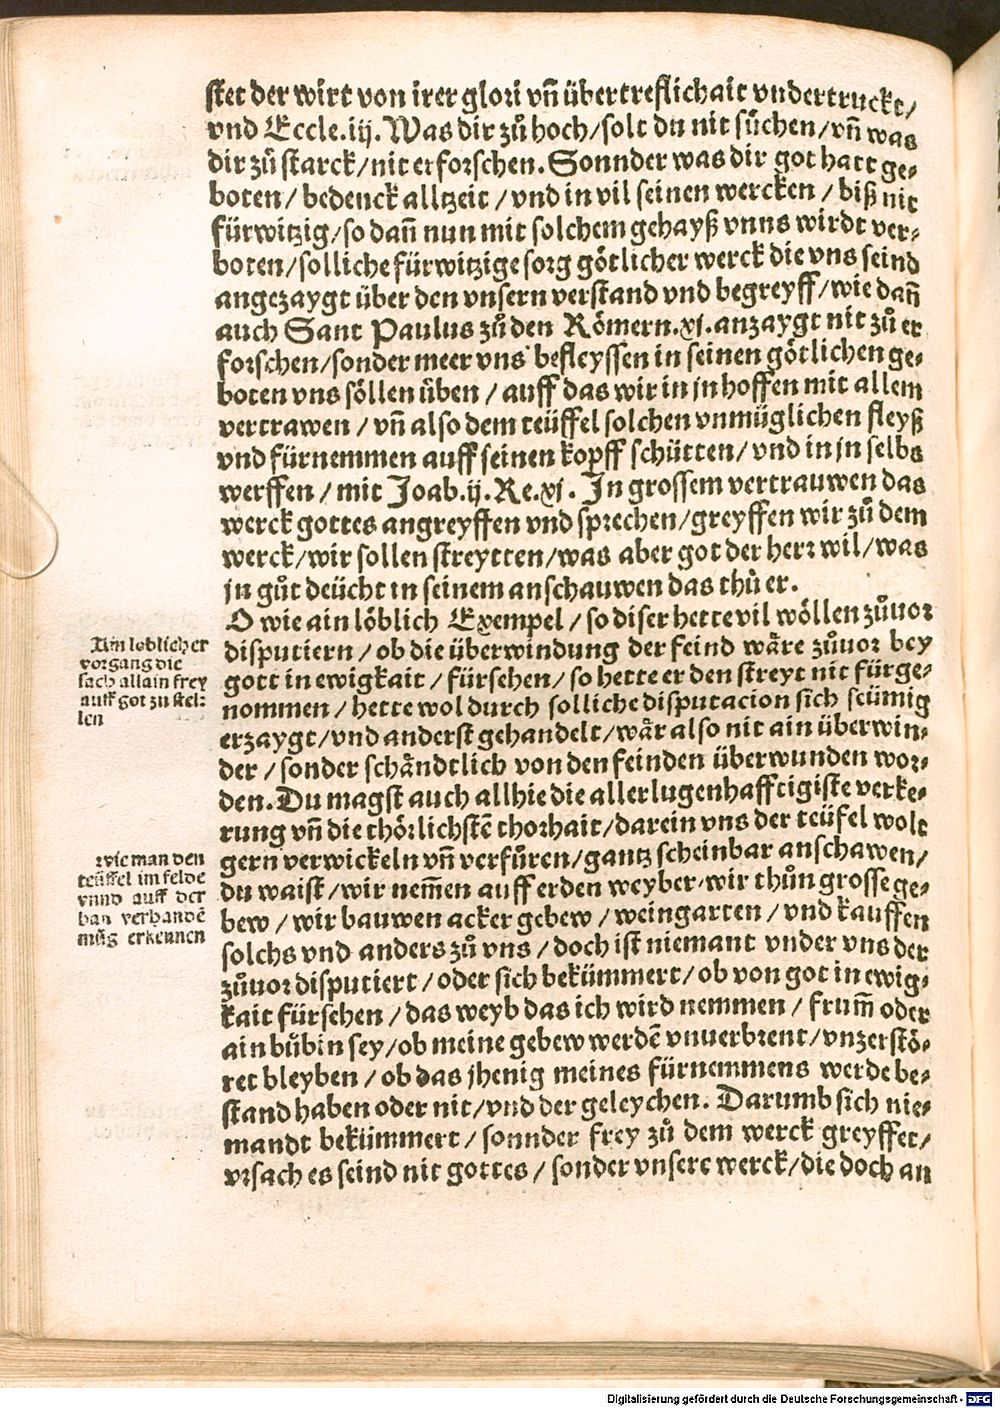 stet der wirt von irer glori vñ übertreflichait vndertruckt/
vnd Eccle.iij. Was dir zů hoch/solt du nit sůchen/vñ was
dir zů starck/nit erforschen. Sonnder was dir got hatt ge⸗
boten/bedenck alltzeit/vnd in vil seinen wercken/biß nit
fürwitzig/so dañ nun mit solchem gehayß vnns wirdt ver⸗
boten/solliche fürwitzige sorg götlicher werck die vns seind
angezaygt über den vnsern verstand vnd begreyff/wie dañ
auch Sant Paulus zů den Römern.xj.anzaygt nit zů er
forschen/sonder meer vns befleyssen in seinen götlichen ge⸗
boten vns söllen üben/auff das wir in jn hoffen mit allem
vertrawen/vñ also dem teüffel solchen vnmüglichen fleyß
vnd fürnemmen auff seinen kopff schütten/vnd in jn selbs
werffen/mit Joab.ij.Re.xj. In grossem vertrauwen das
werck gottes angreyffen vnd sprechen/greyffen wir zů dem
werck/wir sollen streytten/was aber got der herr wil/was
jn gůt deücht in seinem anschauwen das thů er.
O wie ain löblich Exempel/so diser hette vil wöllen zůuor
disputiern/ob die überwindung der feind wäre zůuor bey
gott in ewigkait/fürsehen/so hette er den streyt nit fürge⸗
nommen/hette wol durch solliche disputacion sich seümig
erzaygt/vnd anderst gehandelt/wär also nit ain überwin⸗
der/sonder schändtlich von den feinden überwunden wor⸗
den. Du magst auch allhie die allerlugenhafftigiste verke⸗
rung vñ die thörlichstē thorhait/darein vns der teüfel wolt
gern verwickeln vñ verfüren/gantz scheinbar anschawen/
du waist/wir nem̃en auff erden weyber/wir thůn grosse ge⸗
bew/wir bauwen acker gebew/weingarten/vnd kauffen
solchs vnd anders zů vns/doch ist niemant vnder vns der
zůuor disputiert/oder sich bekümmert/ob von got in ewig⸗
kait fürsehen/das weyb das ich wird nemmen/frum̃ oder
ain bübin sey/ob meine gebew werdē vnuerbrent/vnzerstö⸗
ret bleyben/ob das jhenig meines fürnemmens werde be⸗
stand haben oder nit/vnd der geleychen. Darumb sich nie⸗
mandt bekümmert/sonnder frey zů dem werck greyffet/
vrsach es seind nit gottes/sonder vnsere werck/die doch an
Ain loblicher
vorgang die
sach allain frey
auff got zu stel⸗
len
wie man den
teüffel im felde
vnnd auff der
ban verhandē
müg erkennen
Digitalisierung gefördert durch die Deutsche Forschungsgemeinschaft - DFG